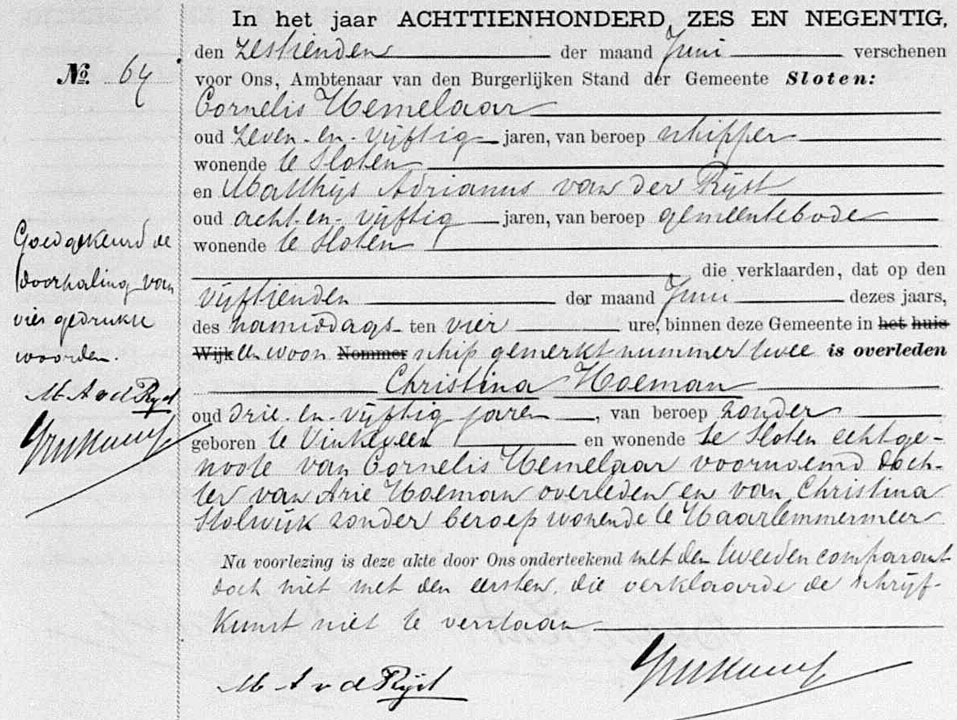 In het jaar ACHTTIENHONDERD, ZES EN NEGENTIG,
den zestienden der maand Juni verschenen
No. 64
voor Ons, Ambtenaar van den Burgerlijken Stand der Gemeente Sloten:
Cornelis Hemelaar
oud zeven-en-vijftig jaren, van beroep schipper
wonende te Sloten
en Matthijs Adrianus van der Rijst
oud acht-en-vijftig jaren, van beroep gemeentebode
wonende te Sloten
die verklaarden, dat op den
vijftienden der maand Juni dezes jaars,
des namiddags ten vier ure, binnen deze Gemeente in het huis
Wijk een woon Nommer schip gemerkt nummer twee is overleden
Christina Hoeman
oud drie-en-vijftig jaren, van beroep zonder
geboren te Vinkeveen en wonende te Sloten echtge-
noote van Cornelis Hemelaar voornoemd doch-
ter van Arie Hoeman overleden en van Christina
Stolwijk zonder beroep wonende te Haarlemmermeer
Na voorlezing is deze akte door Ons onderteekend met den tweeden comparant
doch niet met den eersten, die verklaarde de schrijf-
kunst niet te verstaan
M A v d Rijst
Goedgekeurd de
doorhaling van
vier gedrukte
woorden.
M A v d Rijst